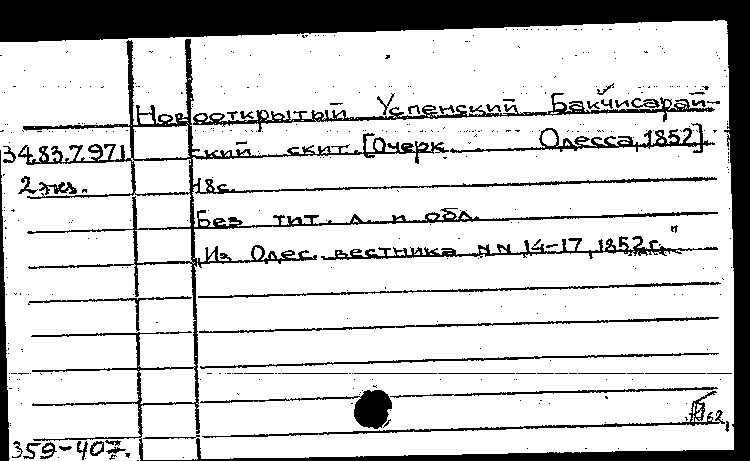 Новооткрытый Успенский Бакчисарай-
34.83.7.971 ский скит. [Очерк. Одесса, 1852].
2 экз. 18с.
Без тит. л. и обл.
„Из Одес. вестника NN 14-17, 1852 г."
62,
359-407.